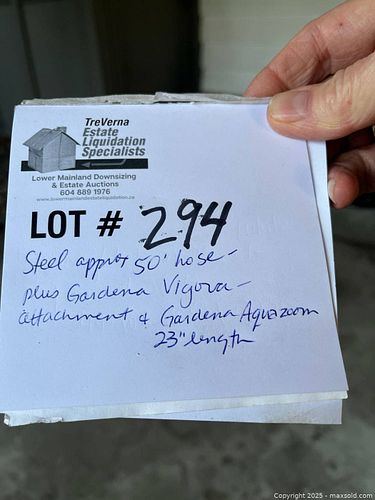 TreVerna
Estate
Liquidation
Specialists
Lower Mainland Downsizing
& Estate Auctions
604 889 1976
www.lowermainlandestateliquidation.ca
LOT # 294
Steel approx 50' hose -
plus Gardena Vigora -
attachment & Gardena Aquazoom
23" length
Copyright 2025 - maxsold.com